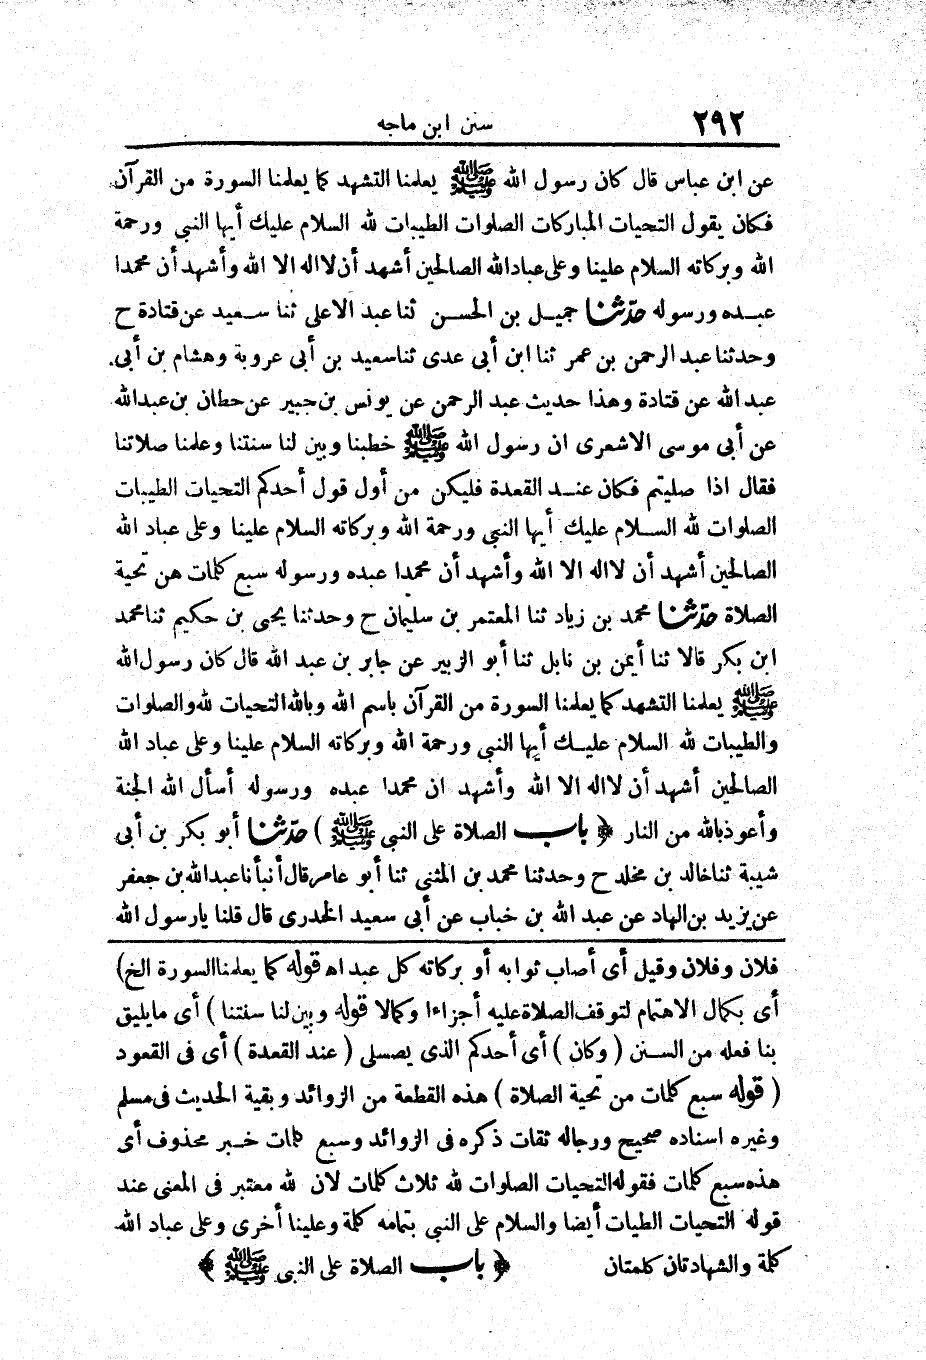 ٢٩٢ سنن ابن ماجه
عن ابن عباس قال كان رسول الله ﷺ يعلمنا التشهد كما يعلمنا السورة من القرآن
فكان يقول التحيات المباركات الصلوات الطيبات لله السلام عليك أيها النبي ورحمة
الله وبركاته السلام علينا وعلى عباد الله الصالحين أشهد أن لا اله الا الله وأشهد أن محمدا
عبده ورسوله حدّثنا جميل بن الحسن ثنا عبد الاعلى ثنا سعيد عن قتادة ح
وحدثنا عبد الرحمن بن عمر ثنا ابن أبى عدى ثنا سعيد بن أبى عروبة وهشام بن أبى
عبد الله عن قتادة وهذا حديث عبد الرحمن عن يونس بن جبير عن حطان بن عبد الله
عن أبى موسى الاشعرى ان رسول الله ﷺ خطبنا وبين لنا سنتنا وعلمنا صلاتنا
فقال اذا صليتم فكان عند القعدة فليكن من أول قول أحدكم التحيات الطيبات
الصلوات لله السلام عليك أيها النبي ورحمة الله وبركاته السلام علينا وعلى عباد الله
الصالحين أشهد أن لا اله الا الله وأشهد أن محمدا عبده ورسوله سبع كلمات هن تحية
الصلاة حدّثنا محمد بن زياد ثنا المعتمر بن سليمان ح وحدثنا يحيى بن حكيم ثنا محمد
ابن بكر قالا ثنا أيمن بن نابل ثنا أبو الزبير عن جابر بن عبد الله قال كان رسول الله
ﷺ يعلمنا التشهد كما يعلمنا السورة من القرآن باسم الله وبالله التحيات لله والصلوات
والطيبات لله السلام عليك أيها النبي ورحمة الله وبركاته السلام علينا وعلى عباد الله
الصالحين أشهد أن لا اله الا الله وأشهد ان محمدا عبده ورسوله أسأل الله الجنة
وأعوذ بالله من النار ﴿ باب الصلاة على النبي ﷺ ) حدّثنا أبو بكر بن أبى
شيبة ثنا خالد بن مخلد ح وحدثنا محمد بن المثنى ثنا أبو عامر قال أنبأنا عبد الله بن جعفر
عن يزيد بن الهاد عن عبد الله بن خباب عن أبى سعيد الخدرى قال قلنا يا رسول الله
فلان وفلان وقيل أى أصاب ثوابه أو بركاته كل عبد اه قوله كما يعلمنا السورة الخ)
أى بكمال الاهتمام لتوقف الصلاة عليه أجزاءا وكمالا قوله وبين لنا سنتنا ) أى ما يليق
بنا فعله من السنن ( وكان ) أى أحدكم الذى يصلى ( عند القعدة ) أى فى القعود
( قوله سبع كلمات من تحية الصلاة ) هذه القطعة من الزوائد وبقية الحديث فى مسلم
وغيره اسناده صحيح ورجاله ثقات ذكره فى الزوائد وسبع كلمات خبر محذوف أى
هذه سبع كلمات فقوله التحيات الصلوات لله ثلاث كلمات لان لله معتبر فى المعنى عند
قوله التحيات الطيات أيضا والسلام على النبي بتمامه كلمة وعلينا أخرى وعلى عباد الله
كلمة والشهادتان كلمتان ﴿ باب الصلاة على النبي ﷺ ﴾